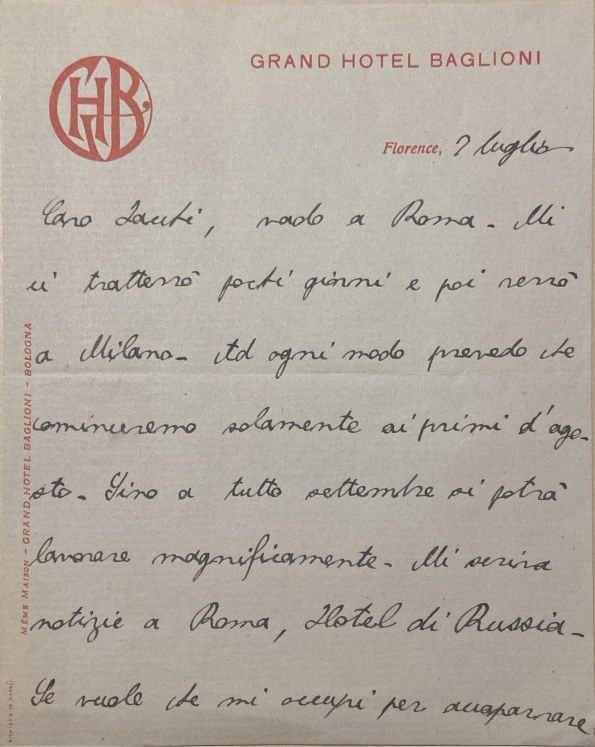 GHB
GRAND HOTEL BAGLIONI
Florence, 7 luglio
Caro Zauti, vado a Roma - Mi
ci tratterrò pochi giorni e poi verrò
a Milano - Ad ogni modo prevedo che
cominceremo solamente ai primi d'ago-
sto - Sino a tutto settembre si potrà
lavorare magnificamente - Mi scriva
notizie a Roma, Hotel di Russia -
Se vuole che mi occupi per accaparrare
MÊME MAISON - GRAND HOTEL BAGLIONI - BOLOGNA